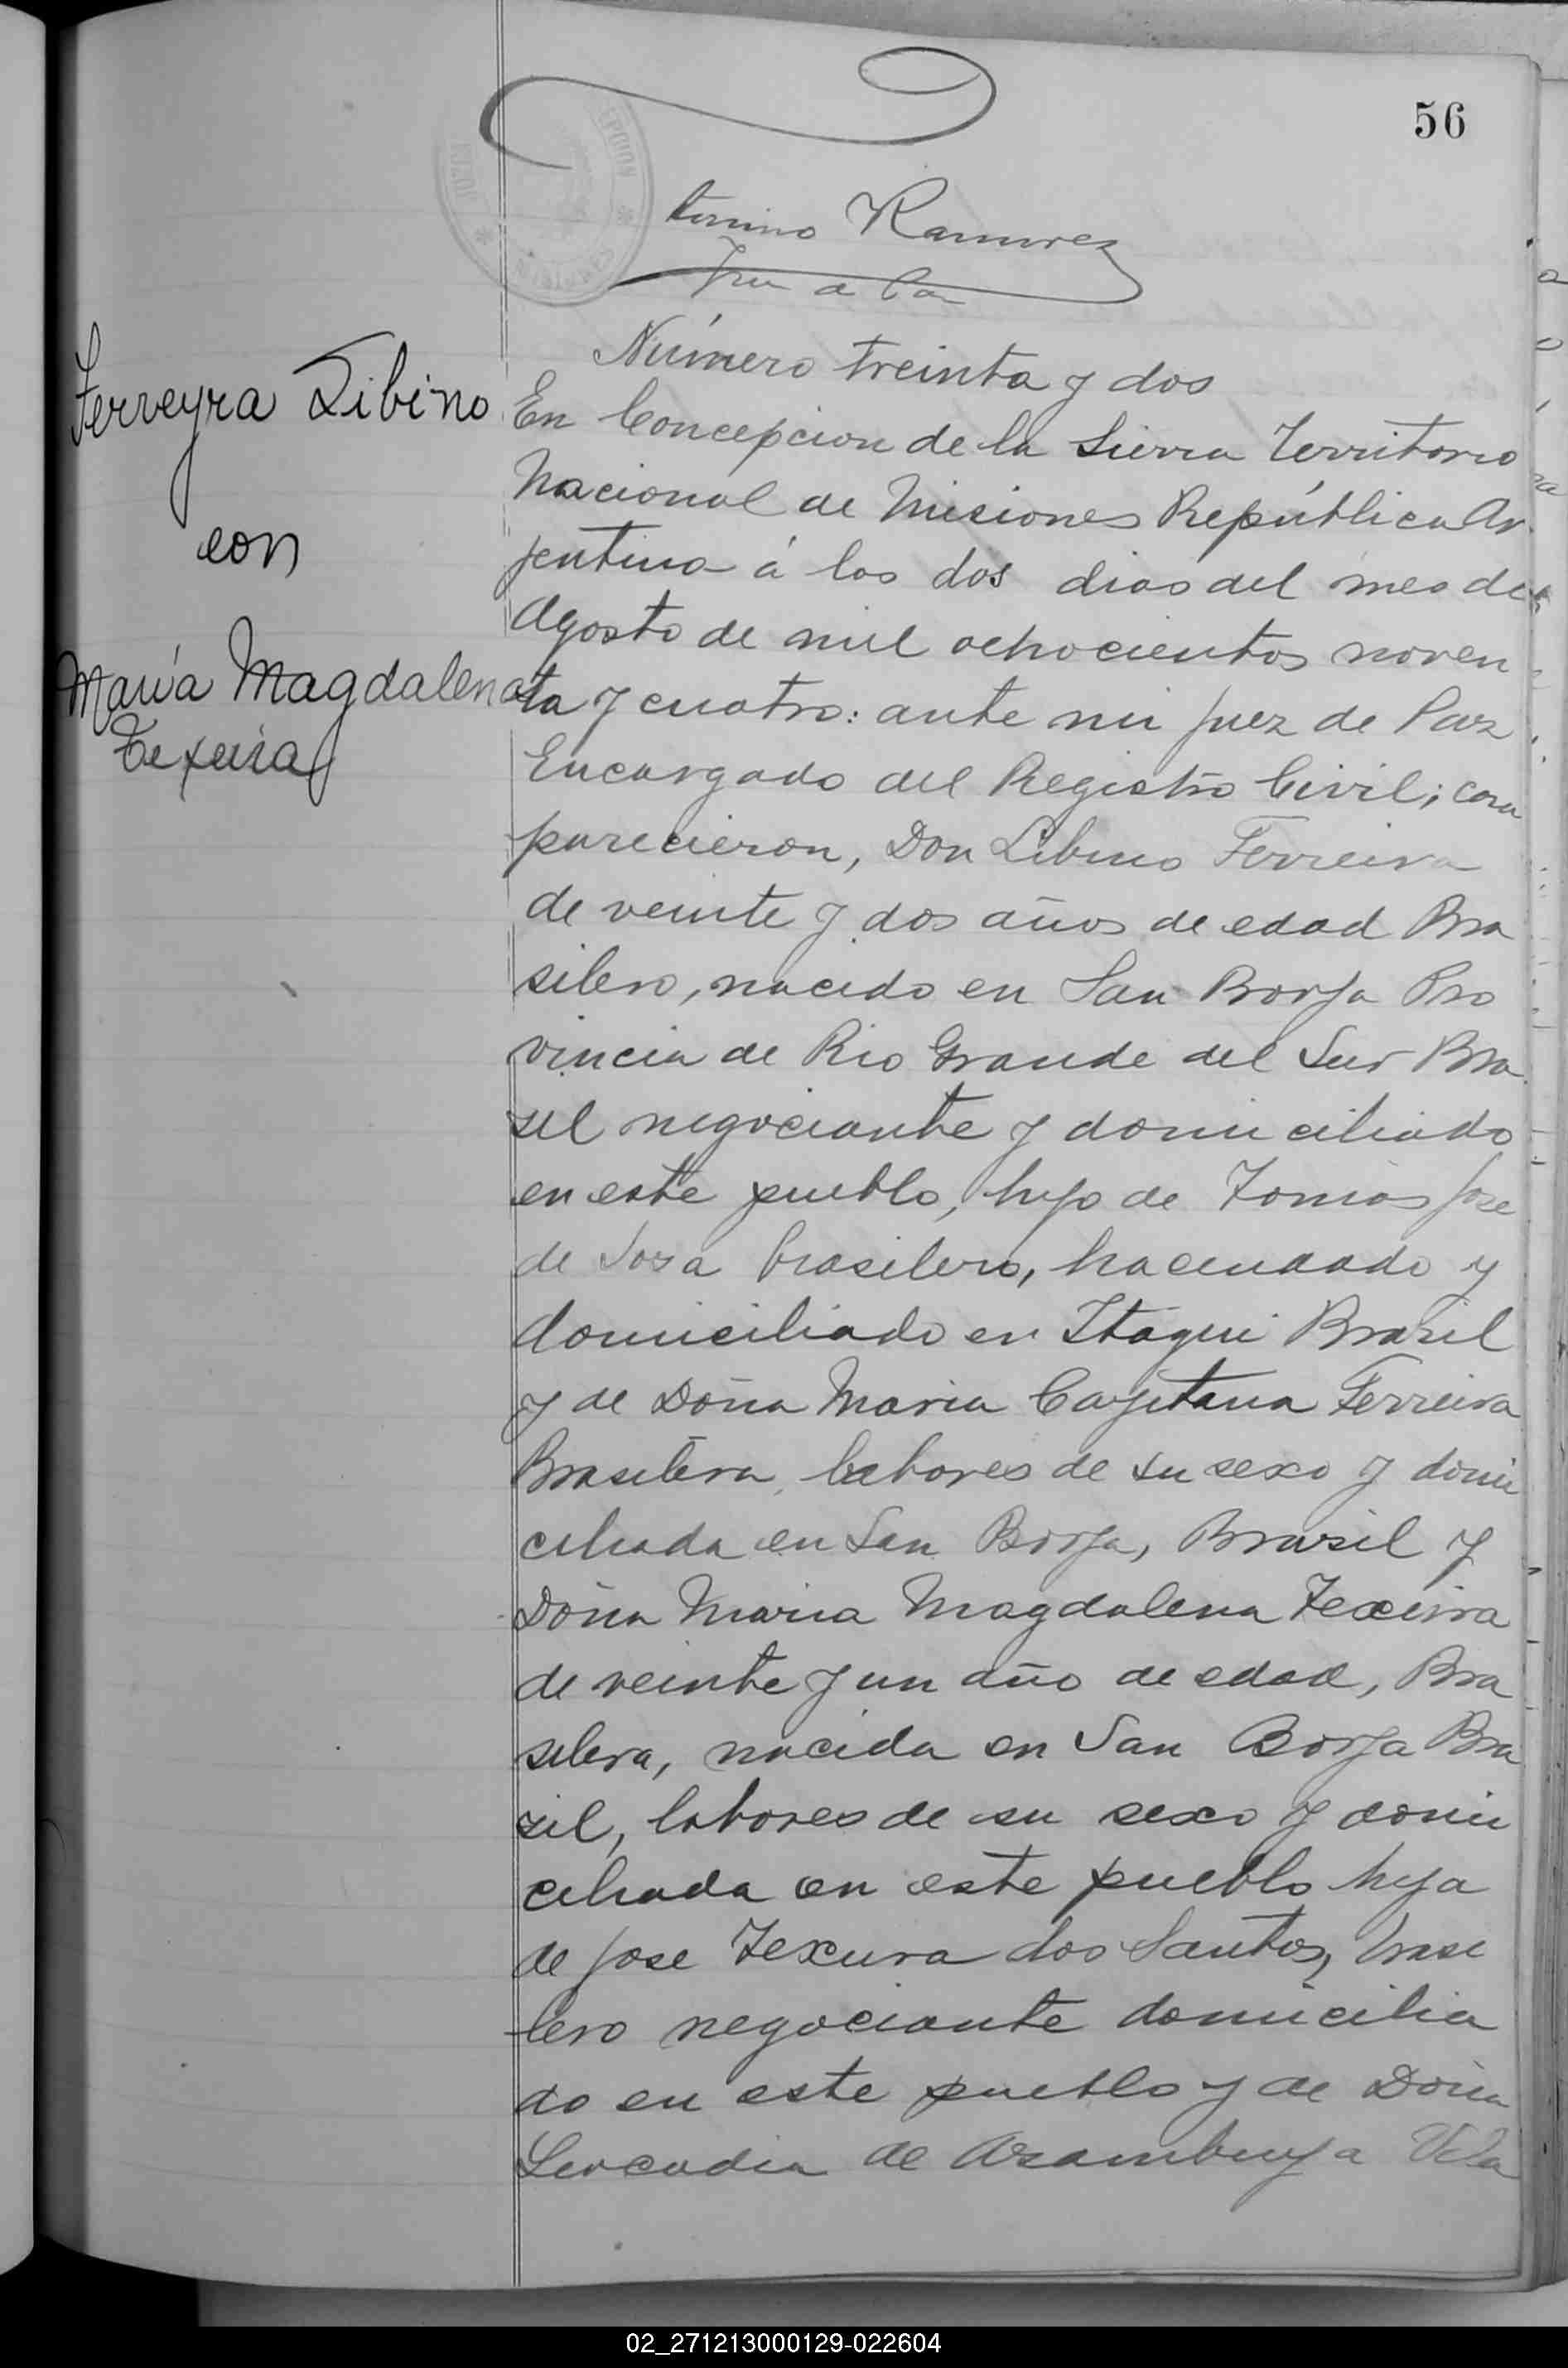 56
Ramirez
Ferreyra Libino
con
María Magdalena
Texeira
Número treinta y dos
En Concepcion de la Sierra Territorio
Nacional de Misiones República Ar-
jentina á los dos dias del mes de
Agosto de mil ochocientos noven
ta y cuatro: ante mi Juez de Paz
Encargado del Registro Civil; com
parecieron, Don Libino Ferreira
de veinte y dos años de edad Bra
silero, nacido en San Borja Pro
vincia de Rio Grande del Sur Bra
zil negociante y domiciliado
en este pueblo, hijo de Tomas Jose
de Soza brasilero, hacendado y
domiciliado en Itaqui Brazil
y de Doña Maria Cayetana Ferreira
Brasilera, labores de su sexo y domi
ciliada en San Borja, Brazil y
Doña Maria Magdalena Texeira
de veinte y un año de edad, Bra
silera, nacida en San Borja Bra
zil, labores de su sexo y domi
ciliada en este pueblo hija
de Jose Texeira dos Santos, brasi
lero negociante domicilia
do en este pueblo y de Doña
Leocadia de Azambuja
02_271213000129-022604